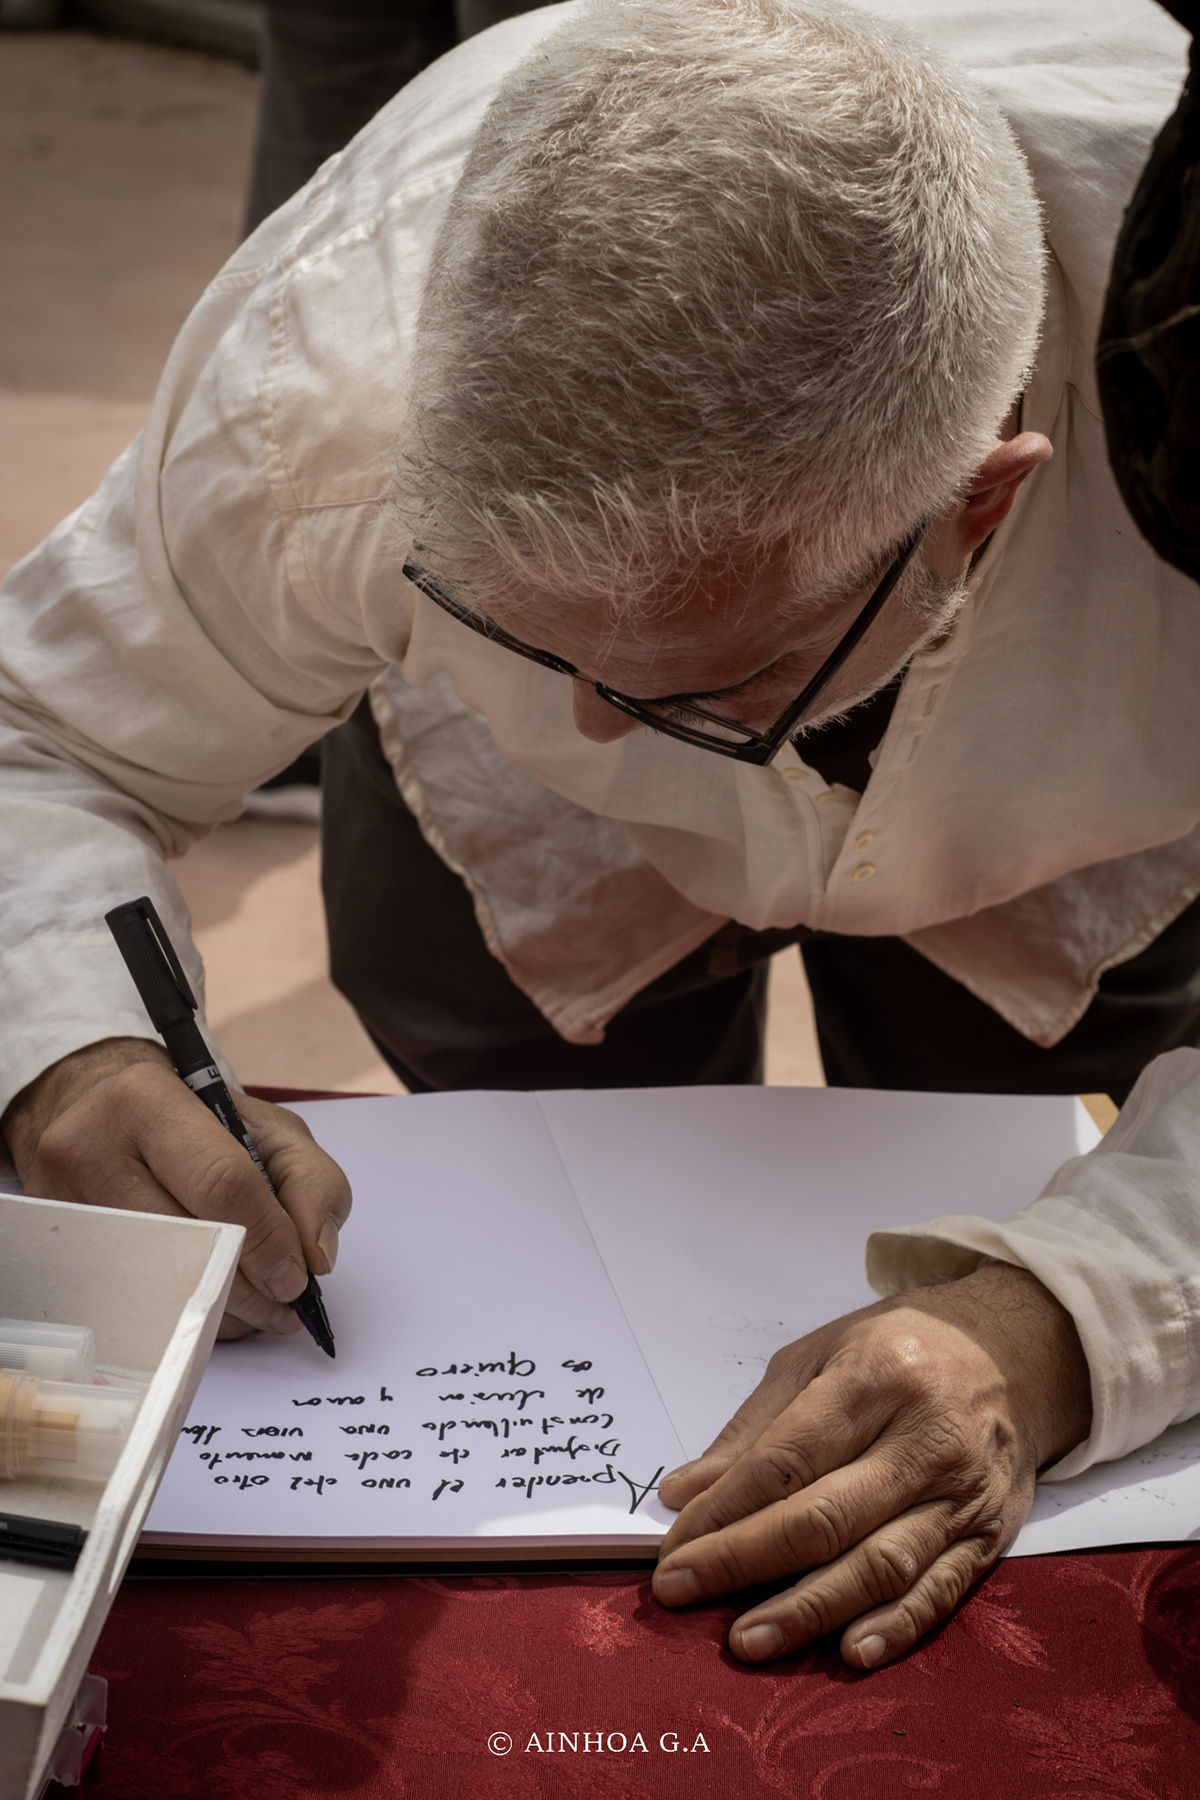 Aprender el uno del otro
Disfrutar de cada momento
Construllendo una vida
de ilusion y amor
os Quiero
© AINHOA G.A